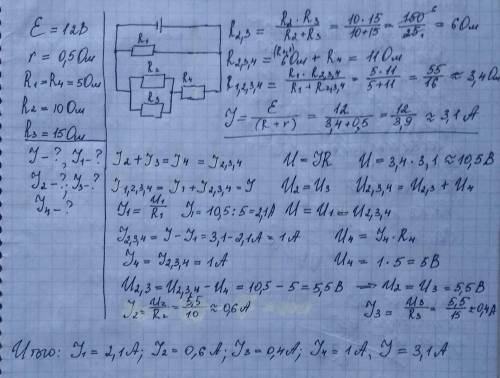 Ɛ = 12В
r = 0,5 Ом
R₁ = R₄ = 5 Ом
R₂ = 10 Ом
R₃ = 15 Ом
J - ?, J₁ - ?
J₂ - ?, J₃ - ?
J₄ - ?
R₁
R₂
R₄
R₃
R₂,₃ = R₂ · R₃ / R₂ + R₃ = 10 · 15 / 10 + 15 = 150 / 25 = 6 Ом
R₂,₃,₄ = 6 Ом + R₄ = 11 Ом
R₁,₂,₃,₄ = R₁ · R₂,₃,₄ / R₁ + R₂,₃,₄ = 5 · 11 / 5 + 11 = 55 / 16 ≈ 3,4 Ом
J = Ɛ / (R + r) = 12 / 3,4 + 0,5 = 12 / 3,9 ≈ 3,1 А
J₂ + J₃ = J₄ = J₂,₃,₄ U = JR U = 3,4 · 3,1 ≈ 10,5 В
J₁,₂,₃,₄ = J₁ + J₂,₃,₄ = J U₂ = U₃ U₂,₃,₄ = U₂,₃ + U₄
J₁ = U₁ / R₁ J₁ = 10,5 : 5 = 2,1 А U = U₁ = U₂,₃,₄
J₂,₃,₄ = J - J₁ = 3,1 - 2,1 А = 1 А U₄ = J₄ · R₄
J₄ = J₂,₃,₄ = 1 А U₄ = 1 · 5 = 5 В
U₂,₃ = U₂,₃,₄ - U₄ = 10,5 - 5 = 5,5 В → U₂ = U₃ = 5,5 В
J₂ = U₂ / R₂ = 5,5 / 10 ≈ 0,6 А J₃ = U₃ / R₃ = 5,5 / 15 ≈ 0,4 А
Итого: J₁ = 2,1 А; J₂ = 0,6 А; J₃ = 0,4 А; J₄ = 1 А, J = 3,1 А